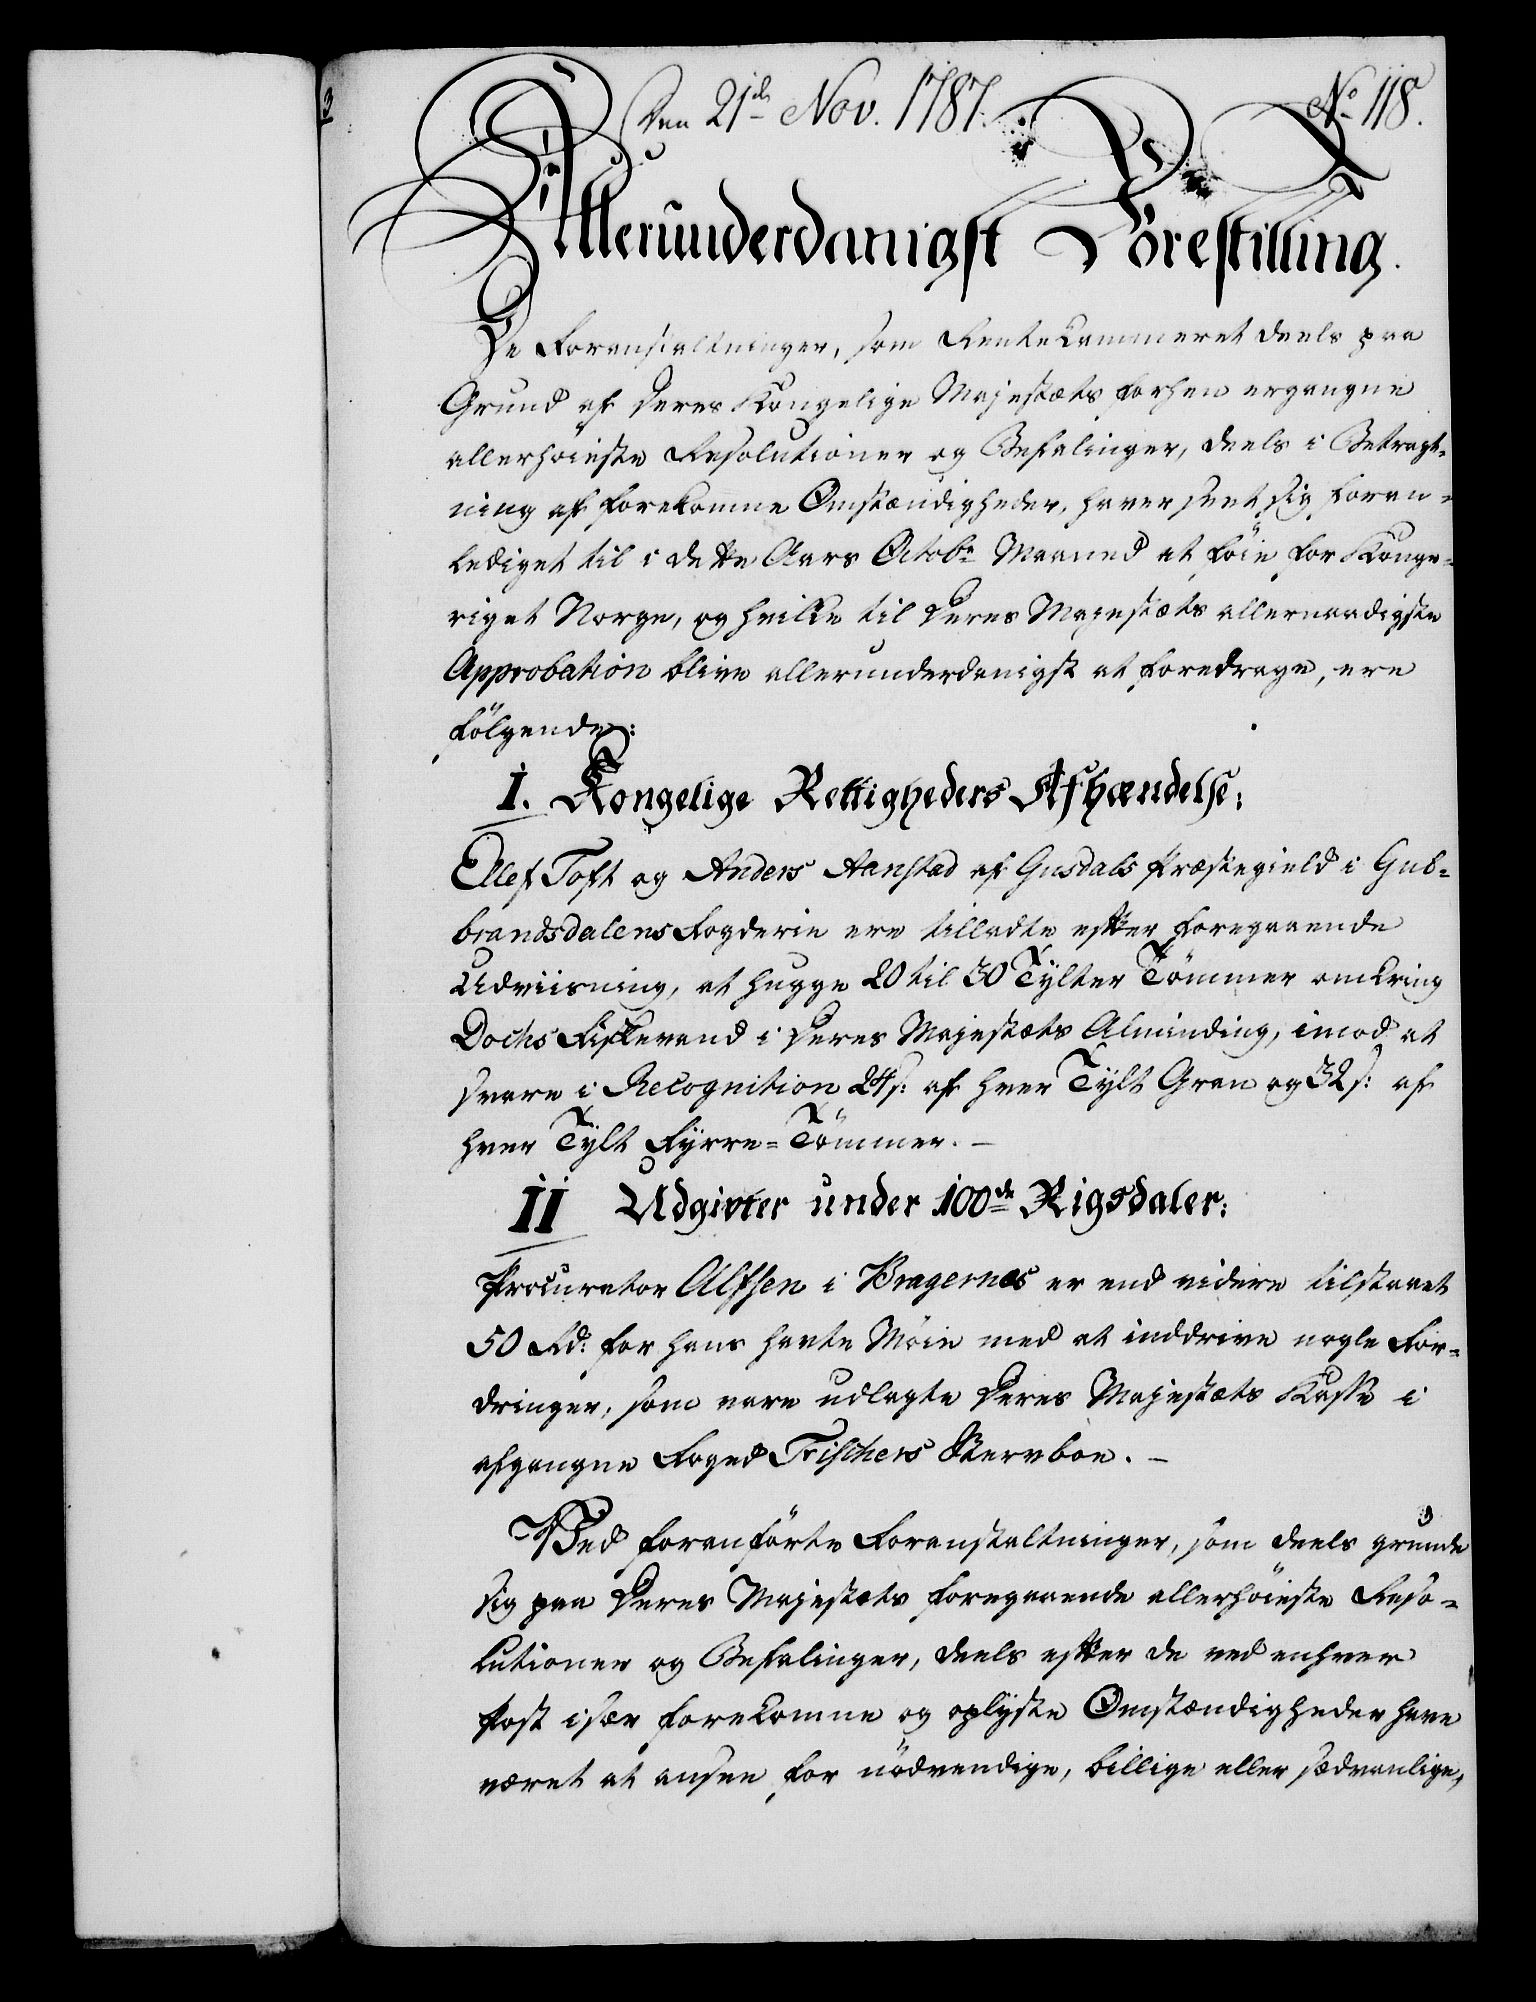 Den 21de Nov. 1787.
No 118.
Allerunderdanigst Forestilling.
De Foranstaltninger, som Rentekammeret deels paa
Grund af Deres Kongelige Majestæts forhen ergangne
allerhöieste Resolutioner og Befalinger, deels i Betragt-
ning af forekomne Omstændigheder, haver seet sig foran-
lediget til i dette Aars Octobr Maaned at föie for Konge-
riget Norge, og hvilke til Deres Majestæts allernaadigste
Approbation blive allerunderdanigst at foredrage, ere
fölgende:
I. Kongelige Rettigheders Afhændelse:
Ellef Toft og Anders Aanstad af Gusdals Præstegield i Gub-
brandsdalens Fogderie ere tilladte efter foregaaende
Udviisning, at hugge 20 til 30 Tylter Tömmer omkring
Dochs Fiskevand i Deres Majestæts Alminding, imod at
svare i Recognition 24 s: af hver Tylt Gran og 32 s: af
hver Tylt Fyrre-Tömmer. –
II Udgivter under 100de Rigsdaler:
Procurator Alfsen i Bragernæs er end videre tilstaaet
50 Rd: for hans havte Möie med at inddrive nogle For-
dringer, som vare udlagte Deres Majestæts Kasse i
afgangne Foged Frischers Stervboe. –
Ved foranförte Foranstaltninger, som deels grunde
sig paa Deres Majestæts foregaaende allerhöieste Reso-
lutioner og Befalinger, deels efter de ved enhver
Post især forekomne og oplyste Omstændigheder have
været at ansee for nödvendige, billige eller sædvanlige,